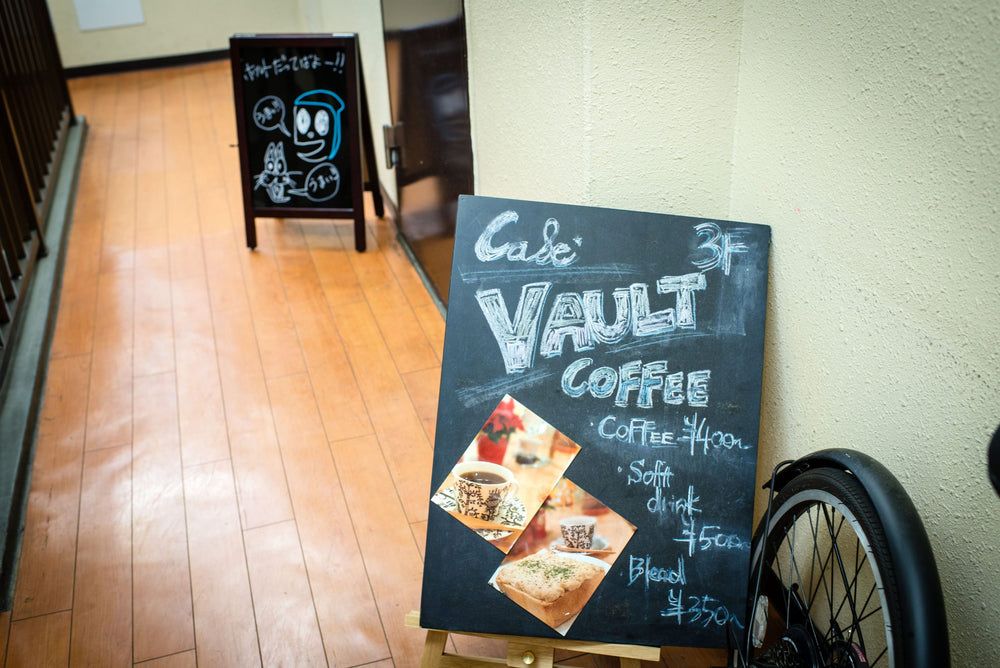 ホットだってばよー!!
うまい!!
うまい
Cafe
3F
VAULT
COFFEE
・COFFEE ¥400~
・Soft
drink
¥500~
・Blead
¥350~